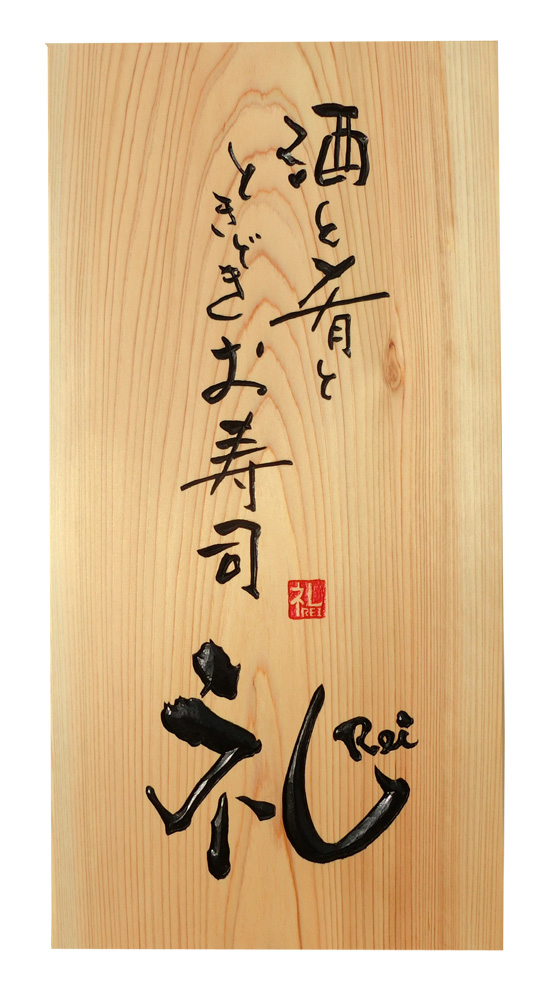 酒と肴と
ときどきお寿司
礼
REI
礼
Rei